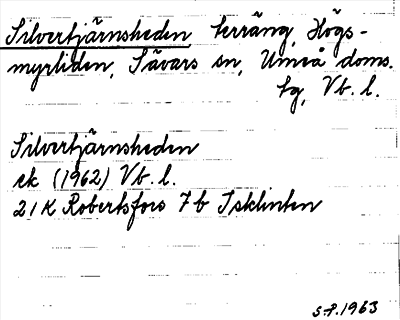 Silvertjärnsheden terräng, Högs-
myrliden, Sävars sn, Umeå doms.
tg, Vb. l.
Silvertjärnsheden
ek (1962) Vb. l.
21K Robertsfors 7b Isklinten
S.P. 1963